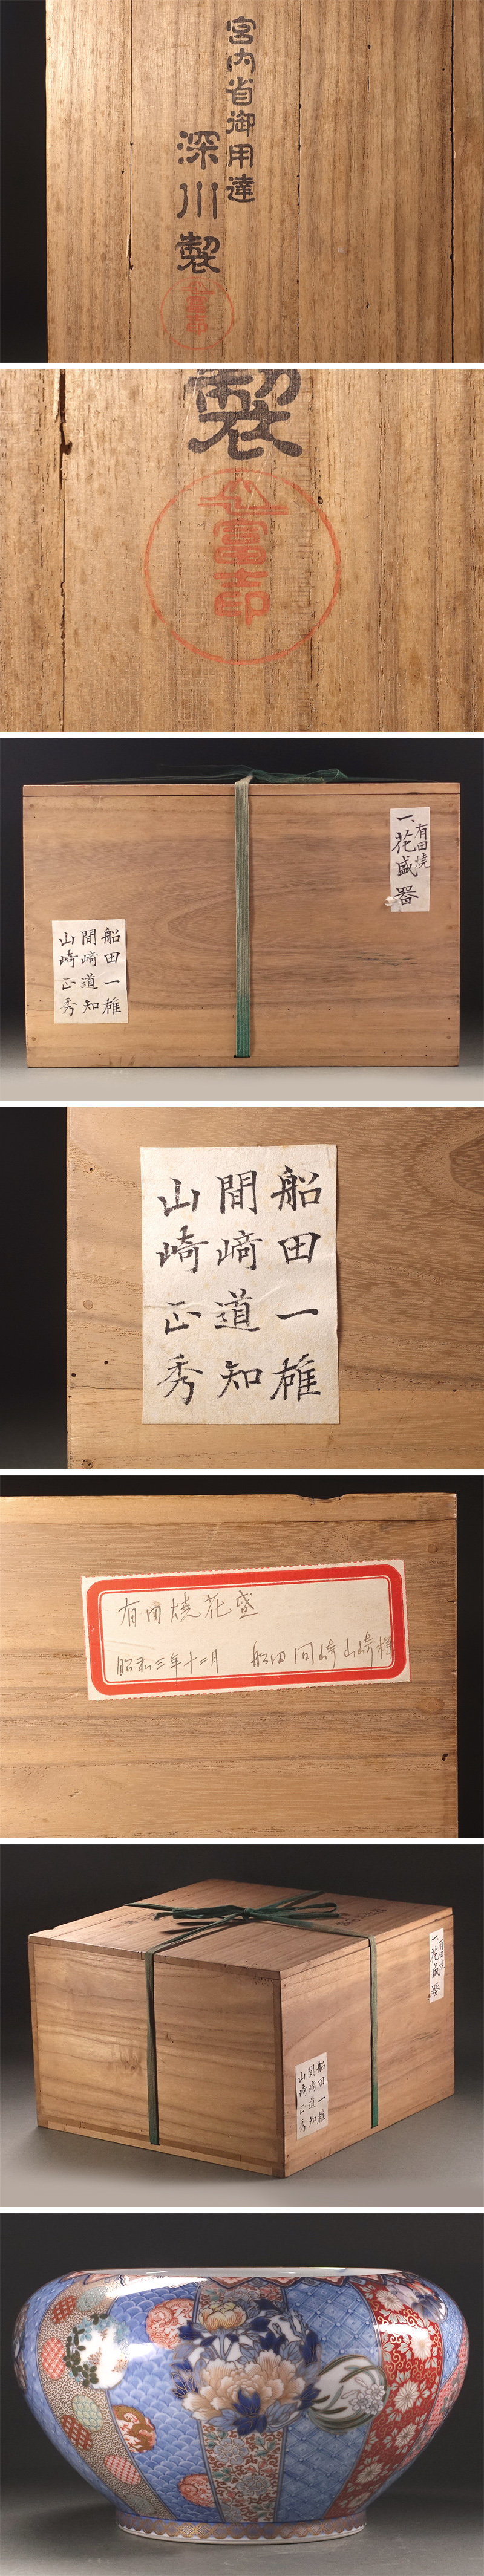 宮内省御用達
深川製
富士印
製
富士印
有田焼
一、花盛器
船田一雄
間﨑道知
山﨑正秀
船田一雄
間﨑道知
山﨑正秀
有田焼花盛
昭和三年十二月 船田 间崎 山崎様
有田焼
一、花盛器
船田一雄
間﨑道知
山﨑正秀